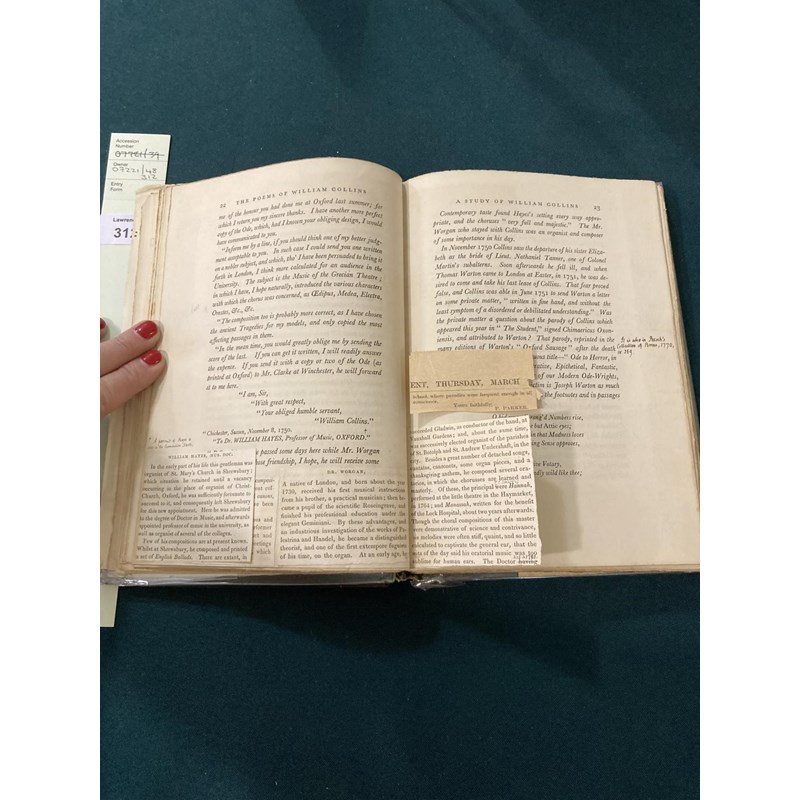 Accession
Number
07721/39
Owner
07221/48
312
Entry
Form
Lawren
312
22 THE POEMS OF WILLIAM COLLINS
me of the honour you had done me at Oxford last summer; for
which I return you my sincere thanks. I have another more perfect
copy of the Ode, which, had I known your obliging design, I would
have communicated to you.
"Inform me by a line, if you should think one of my better judg-
ment acceptable to you. In such case I could send you one written
on a nobler subject, and which, tho' I have been persuaded to bring it
forth in London, I think more calculated for an audience in the
University. The subject is the Music of the Grecian Theatre;
in which I have, I hope naturally, introduced the various characters
with which the chorus was concerned, as Œdipus, Medea, Electra,
Orestes, &c., &c.
"The composition too is probably more correct, as I have chosen
the ancient Tragedies for my models, and only copied the most
affecting passages in them.
"In the mean time, you would greatly oblige me by sending the
score of the last. If you can get it written, I will readily answer
the expense. If you send it with a copy or two of the Ode (as
printed at Oxford) to Mr. Clarke at Winchester, he will forward
it to me here.
"I am, Sir,
"With great respect,
"Your obliged humble servant,
"William Collins."
"Chichester, Sussex, November 8, 1750.
"To Dr. WILLIAM HAYES, Professor of Music, OXFORD."
passed some days here while Mr. Worgan
whose friendship, I hope, he will receive some
WILLIAM HAYES, MUS. DOC.
In the early part of his life this gentleman was
organist of St. Mary's Church in Shrewsbury;
which situation he retained until a vacancy
occurring in the place of organist of Christ-
Church, Oxford, he was sufficiently fortunate to
succeed to it, and consequently left Shrewsbury
for this new appointment. Here he was admitted
to the degree of Doctor in Music, and afterwards
appointed professor of music in the university, as
well as organist of several of the colleges.
Few of his compositions are at present known.
Whilst at Shrewsbury, he composed and printed
a set of English Ballads. There are extant, in
DR. WORGAN.
A native of London, and born about the year
1720, received his first musical instructions
from his brother, a practical musician; then be-
came a pupil of the scientific Roseingrave, and
finished his professional education under the
elegant Geminiani. By these advantages, and
an industrious investigation of the works of Pa-
lestrina and Handel, he became a distinguished
theorist, and one of the first extempore fuguists
of his time, on the organ. At an early age, he
A STUDY OF WILLIAM COLLINS 23
Contemporary taste found Hayes's setting every way appro-
priate, and the choruses "very full and majestic." The Mr.
Worgan who stayed with Collins was an organist and composer
of some importance in his day.
In November 1750 Collins saw the departure of his sister Eliza-
beth as the bride of Lieut. Nathaniel Tanner, one of Colonel
Martin's subalterns. Soon afterwards he fell ill, and when
Thomas Warton came to London at Easter, in 1751, he was de-
sired to come and take his last leave of Collins. That fear proved
false, and Collins was able in June 1751 to send Warton a letter
on some private matter, "written in fine hand, and without the
least symptom of a disordered or debilitated understanding." Was
the private matter a question about the parody of Collins which
appeared this year in "The Student," signed Chimæricus Oxon-
iensis, and attributed to Warton? That parody, reprinted in the
many editions of Warton's "Oxford Sausage" after the death
mous title—" Ode to Horror, in
Epithetical, Fantastic,
of our Modern Ode-Wrights,
is Joseph Warton as much
the footnotes and in passages
Numbers rise,
but Attic eyes;
in that Madness loves
Sense approves,
Votary,
wild like thee;
ENT, THURSDAY, MARCH
School, where parodies were frequent enough in all
Yours faithfully,
P. PARKER.
succeeded Gladwin, as conductor of the band, at
Vauxhall Gardens; and, about the same time,
was successively elected organist of the parishes
of St. Botolph and St. Andrew Undershaft, in the
city. Besides a great number of detached songs,
cantatas, concertos, some organ pieces, and a
thanksgiving anthem, he composed several ora-
torios, in which the chorusses are learned and
masterly. Of these, the principal were Hannah,
performed at the little theatre in the Haymarket,
in 1764; and Manasseh, written for the benefit
of the Lock Hospital, about two years afterwards.
Though the choral compositions of this master
were demonstrative of science and contrivance,
his melodies were often stiff, quaint, and so little
calculated to captivate the general ear, that the
wits of the day said his oratorial music was too
sublime for human ears. The Doctor having